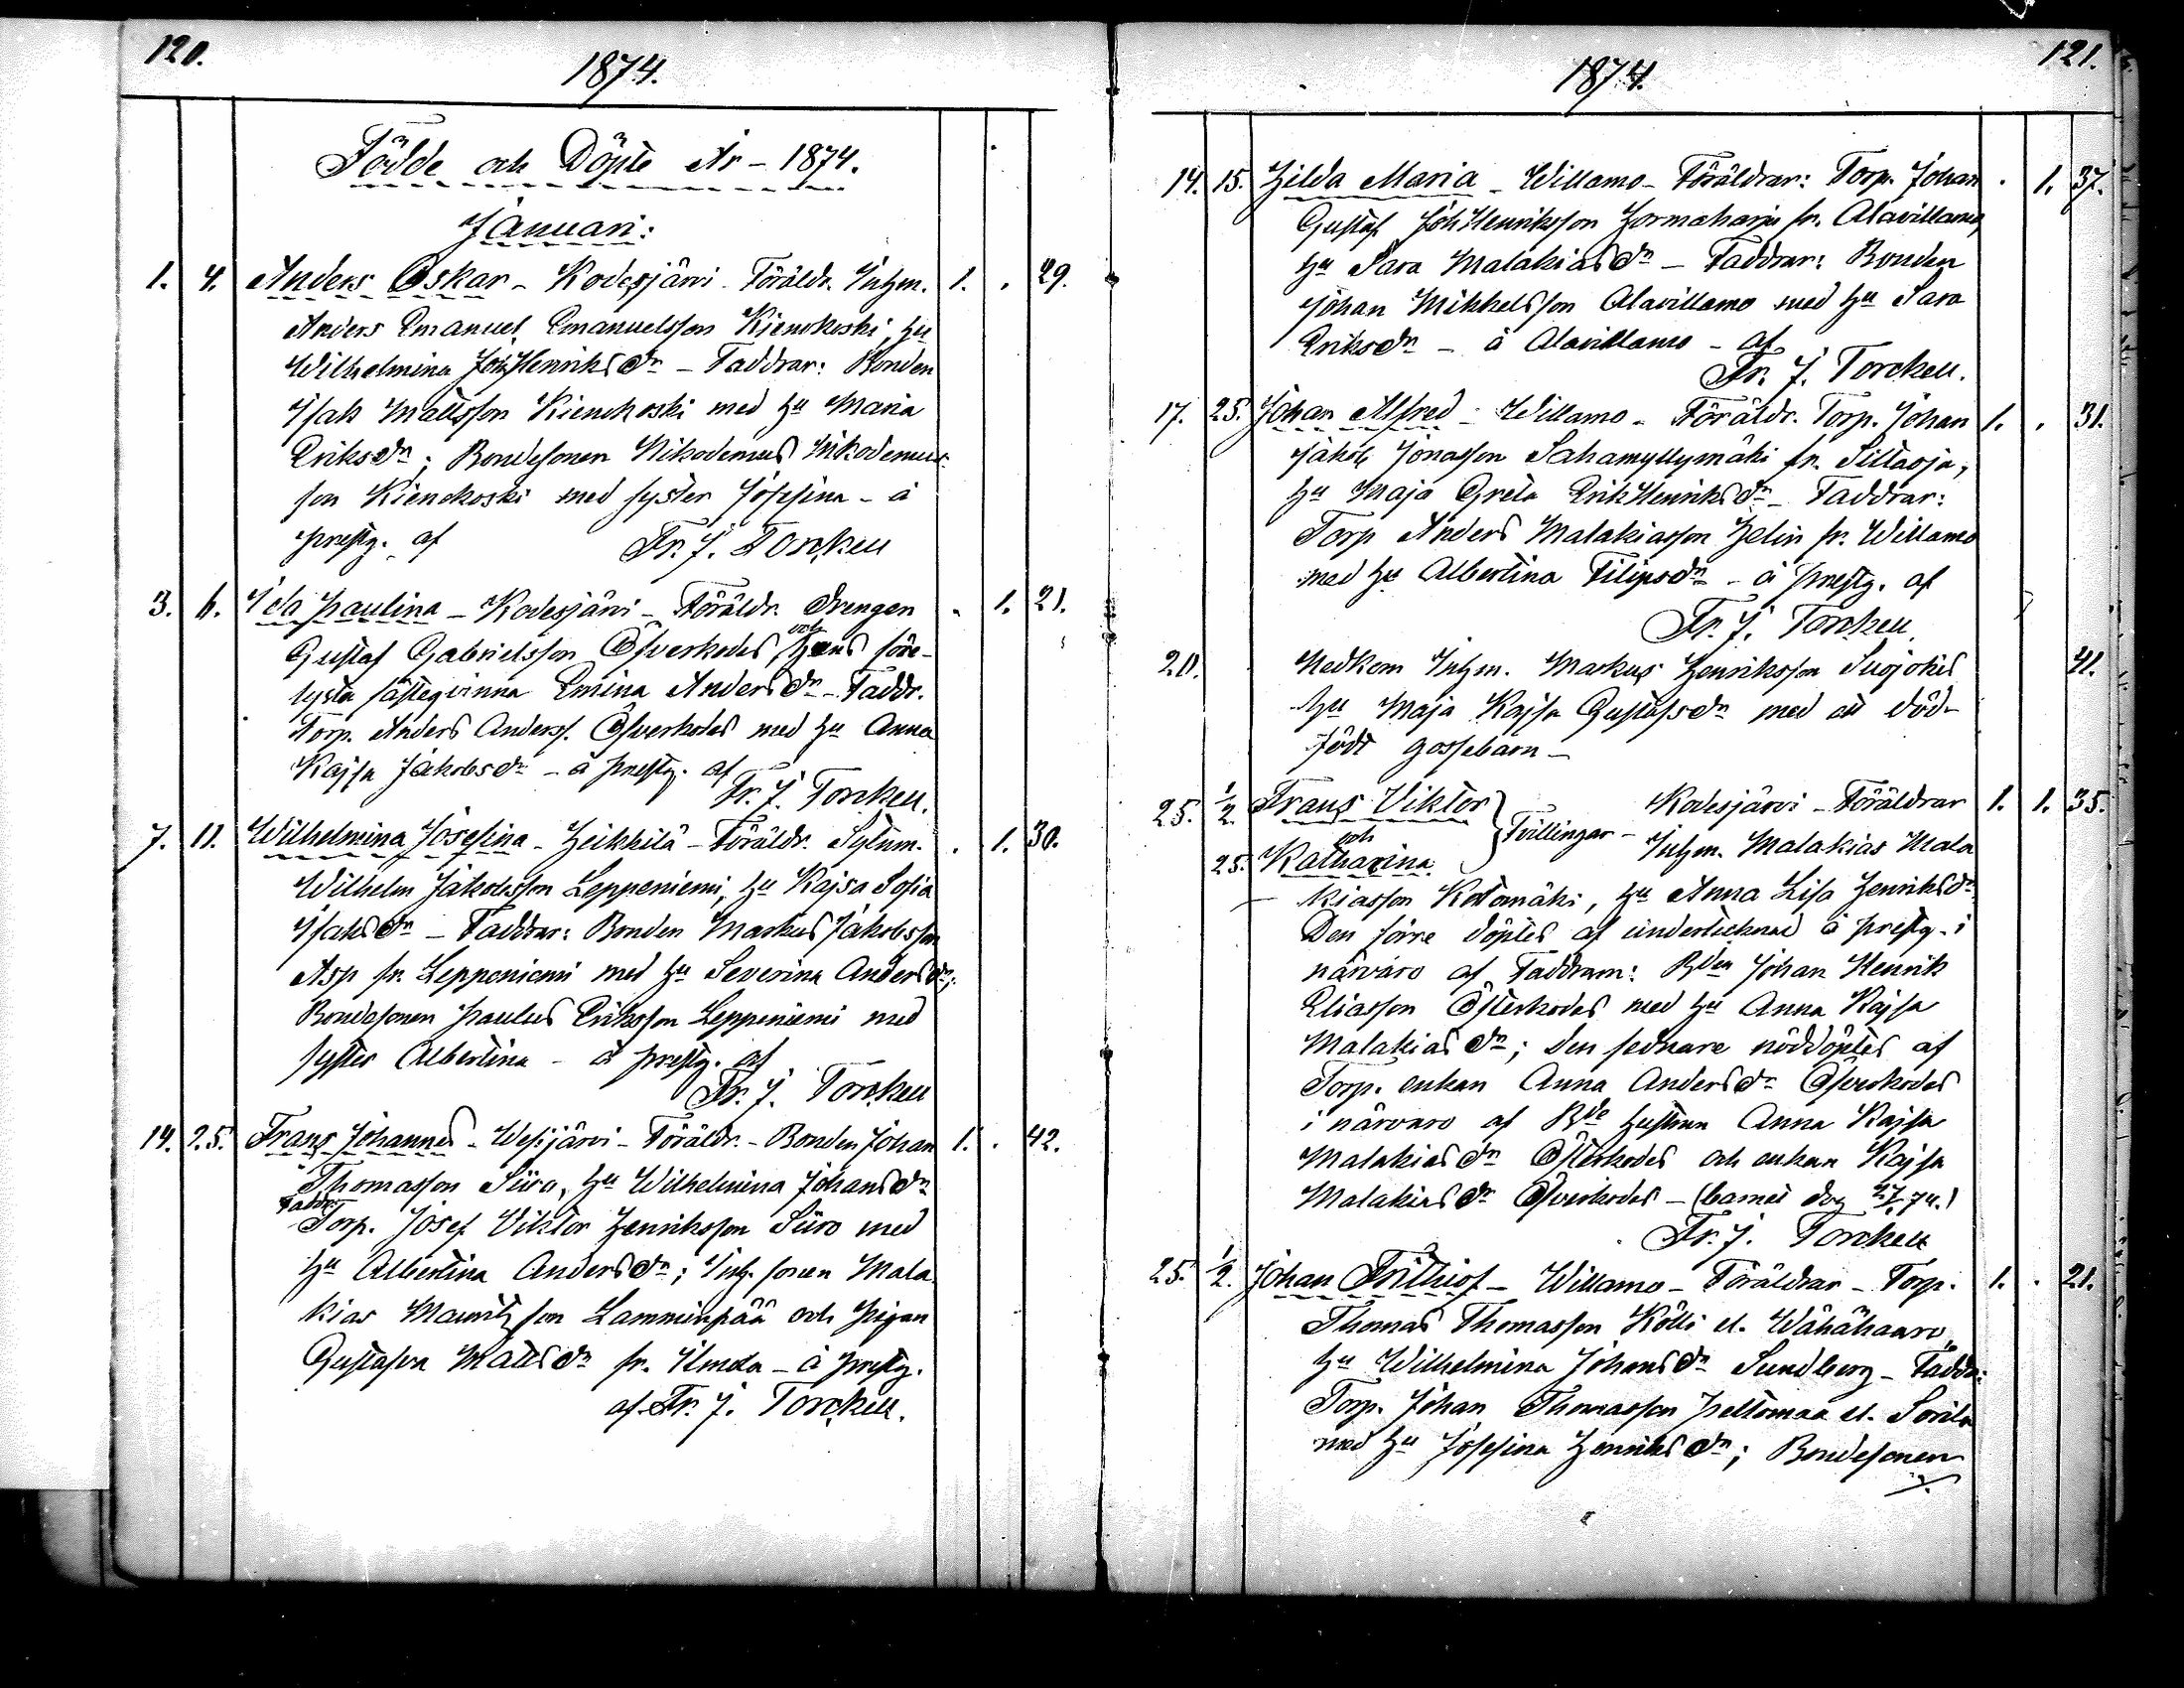 120.
1874.
Födde och Döpte År - 1874.
Januari:
1. 4. Anders Oskar - Kodesjärvi - Föräldr. Inhm. 1. . 29.
Anders Emanuel Emanuelsson Kienokoski, hu
Wilhelmina JohHenriksdr - Faddrar: Bonden
Isak Mattsson Kienokoski med hu Maria
Eriksdr; Bondesonen Nikodemus Nikodemus-
son Kienokoski med syster Josefina - å
prestg. af Fr. J. Torckell
3. 6. Ida Paulina - Kodesjärvi - Föräldr. Drengen . 1. 21.
Gustaf Gabrielsson Öfverkodes, och hans före-
systa fästeqvinna Emina Andersdr - Faddr.
Torp. Anders Anderss. Öfverkodes med hu Anna
Kajsa Jakobsdr - å prestg. af
Fr. J. Torckell.
7. 11. Wilhelmina Josefina - Heikkilä - Föräldr. Sytnm. . 1. 30.
Wilhelm Jakobsson Leppeniemi, hu Kajsa Sofia
Isaksdr - Faddrar: Bonden Markus Jakobsson
Asp fr. Leppeniemi med hu Severina Andersdr;
Bondesonen Paulus Eriksson Leppeniemi med
syster Albertina - å prestg. af
Fr. J. Torckell
14. 25. Frans Johannes - Wesijärvi - Föräldr. - Bonden Johan 1. . 42.
Thomasson Siiro, hu Wilhelmina Johansdr
Faddr.
Torp. Josef Viktor Henriksson Siiro med
hu Albertina Andersdr; Inh. sonen Mala
kias Mauritzson Lamminpää och pigan
Gustafva Mattsdr fr. - å prestg.
af Fr. J. Torckell.
1874.
121.
14. 15. Hilda Maria - Willamo - Föräldrar: Torp. Johan . 1. 37.
Gustaf JohHenriksson Hormaharju fr. Alavillamo,
hu Sara Malakiasdr - Faddrar: Bonden
Johan Mikkelsson Alavillamo med hu Sara
Eriksdr - å Alavillamo - af
Fr. J. Torckell.
17. 25. Johan Alfred - Willamo - Föräldr. Torp. Johan 1. . 31.
Jakob Jonasson Sahamyllymäki fr. Siltaoja,
hu Maja Greta ErikHenriksdr - Faddrar:
Torp Anders Malakiasson Helin fr. Willamo
med hu Albertina Filipsdr - å prestg. af
Fr. J. Torckell.
20. Nedkom Inhm. Markus Henriksson Suojokis 41.
hu Maja Kajsa Gustafsdr med ett död-
född gossebarn -
25. 1/2. Frans Viktor } Kodesjärvi - Föräldrar 1. 1. 35.
och Tvillingar - Inhm. Malakias Mala
25. Katharina
kiasson Kotomäki, hu Anna Lisa Henriksdr
Den förre döptes af undertecknad å prestg. i
närvaro af Faddrarn: Bden Johan Henrik
Eliasson Österkodes med hu Anna Kajsa
Malakiasdr; den sednare nöddöptes af
Torp. enkan Anna Andersdr Öfverkodes
i närvaro af Bde hustrun Anna Kajsa
Malakiasdr Österkodes och enkan Kajsa
Malakiasdr Öfverkodes - (barnet dog 27/1 74.)
Fr. J. Torckell
25. 1/2. Johan Frithiof - Willamo - Föräldrar - Torp. 1. . 21.
Thomas Thomasson Kölli el. Wähähaaro,
hu Wilhelmina Johansdr Sundberg - Faddr:
Torp. Johan Thomasson Peltomaa el. Sorila
med hu Josefina Henriksdr; Bondesonen